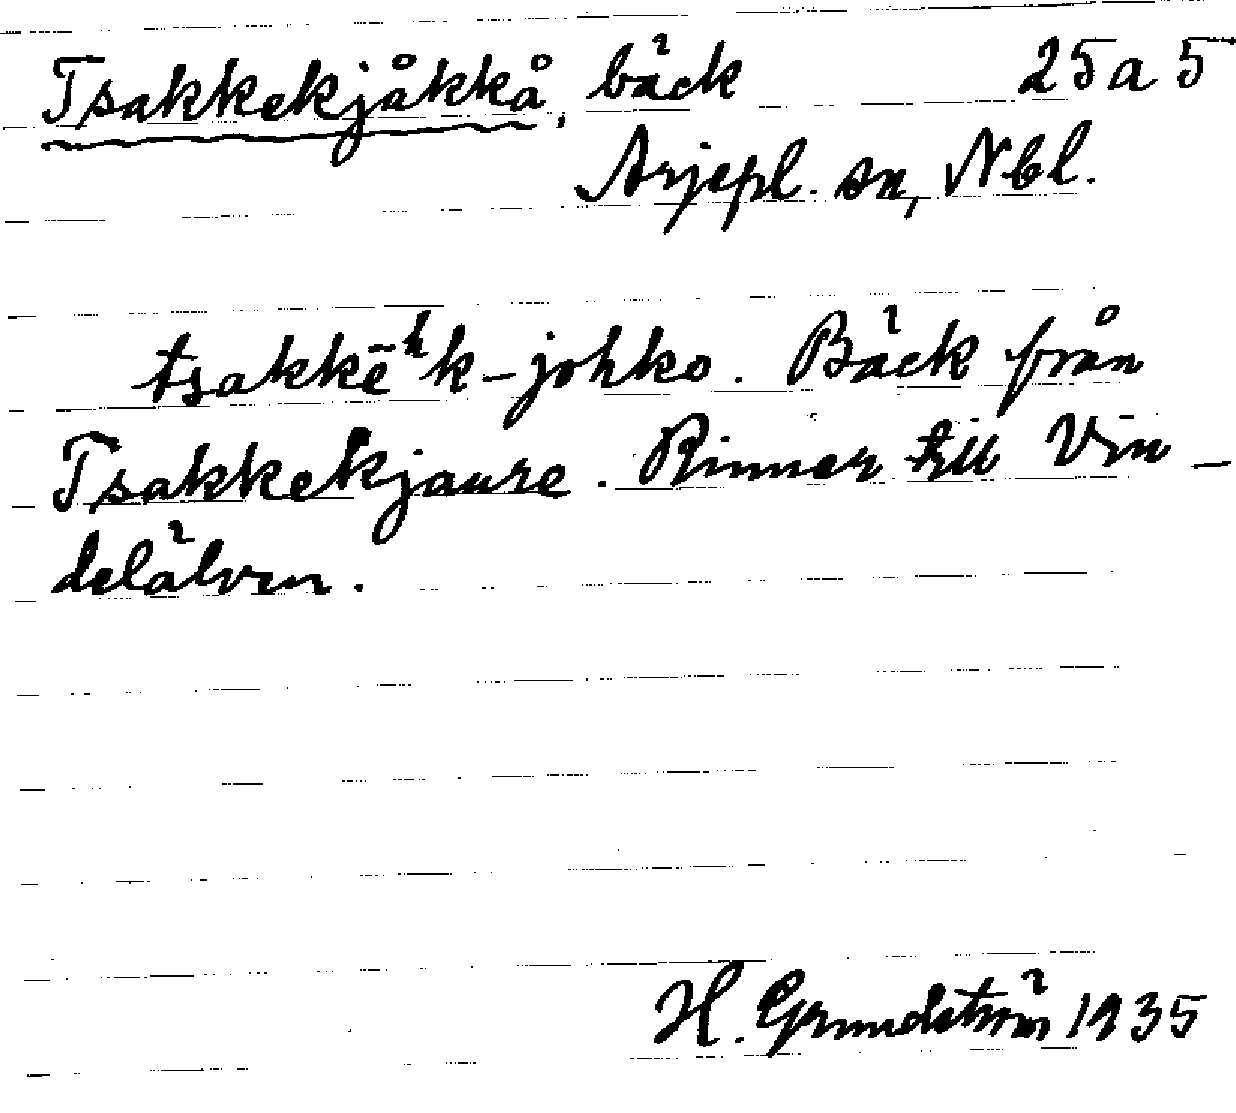 Tsakkekjåkkå, bäck 25a5
Arjepl. sn, Nbl.
tsakkēʰk-johko. Bäck från
Tsakkekjaure. Rinner till Vin-
delälven.
H. Grundström 1935